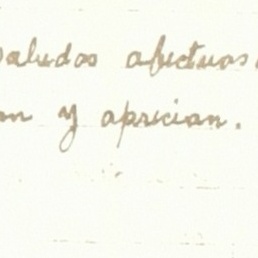 saludos afectuos
an y aprician.